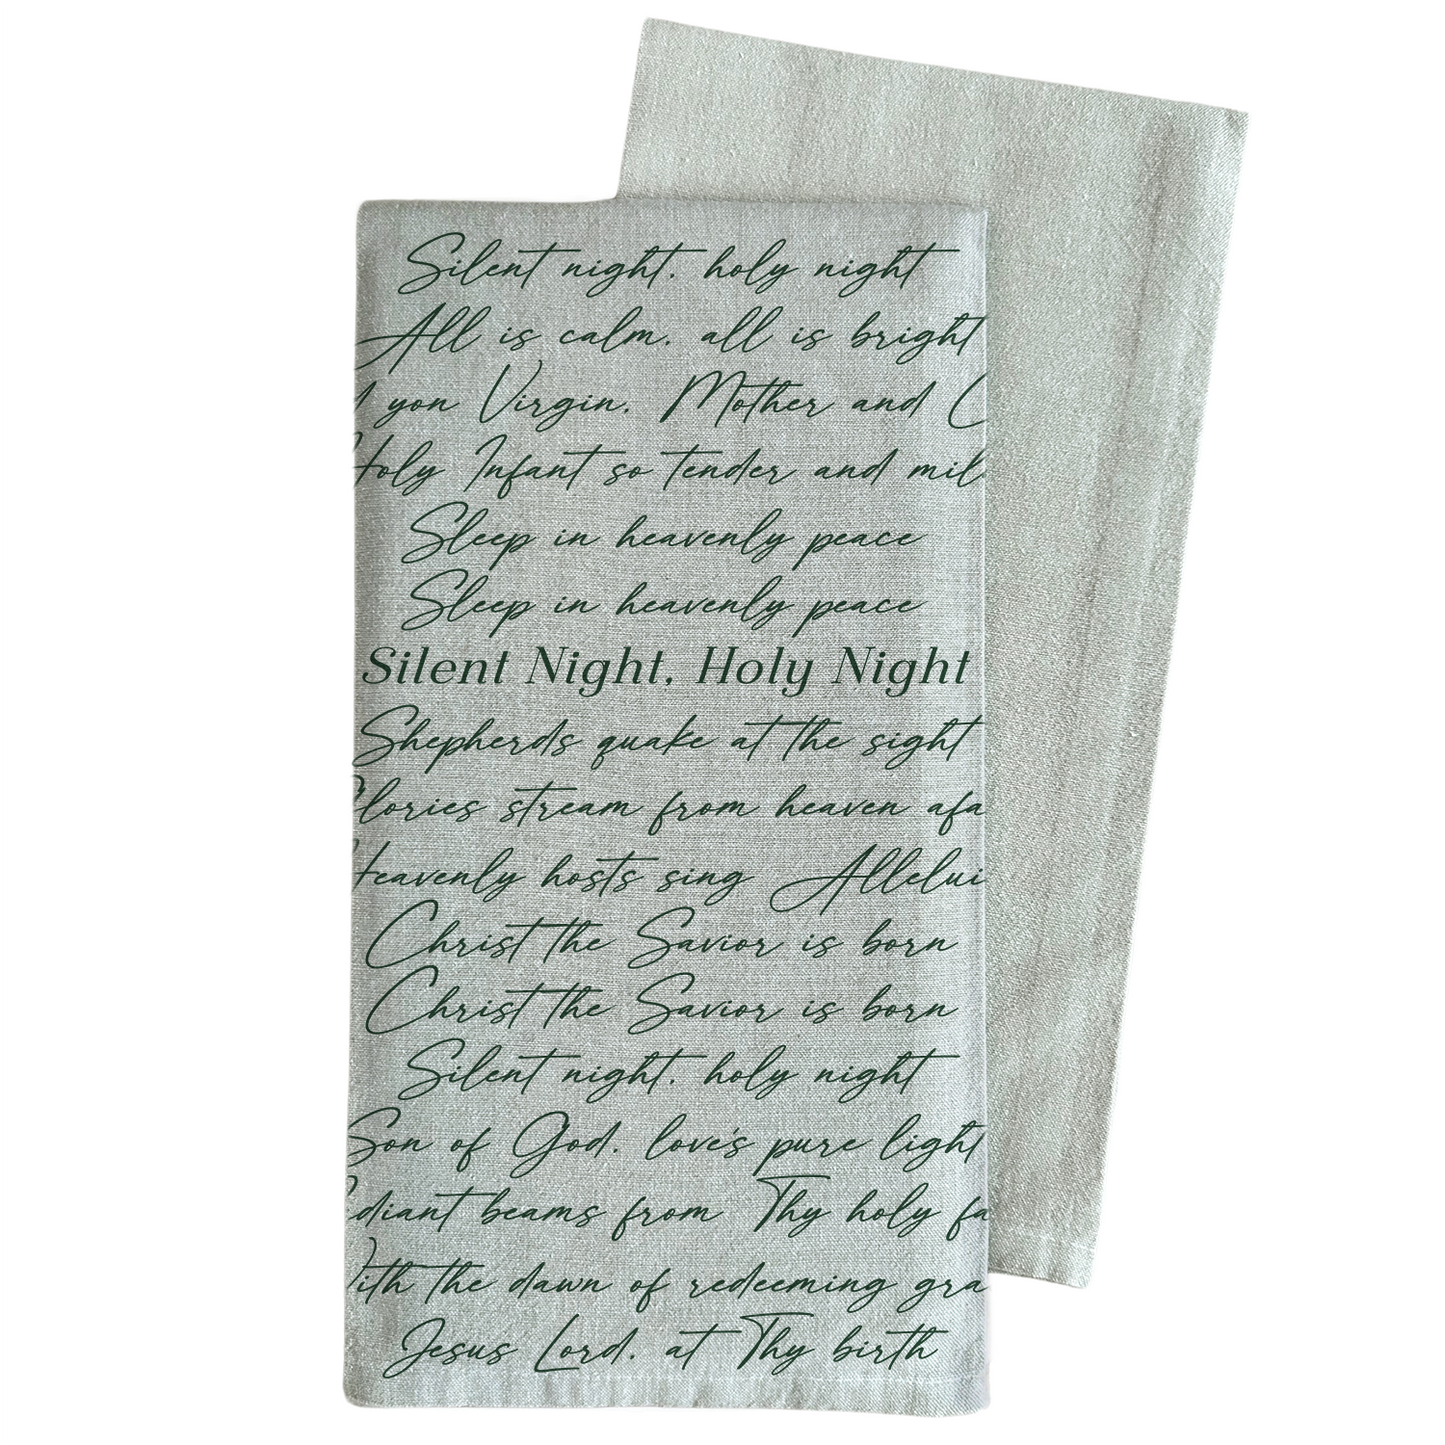 Silent night, holy night
All is calm, all is bright
yon Virgin, Mother and C
Holy Infant so tender and mil
Sleep in heavenly peace
Sleep in heavenly peace
Silent Night, Holy Night
Shepherds quake at the sight
lories stream from heaven afa
Heavenly hosts sing Allelui
Christ the Savior is born
Christ the Savior is born
Silent night, holy night
Son of God, love's pure light
diant beams from Thy holy fa
ith the dawn of redeeming gra
Jesus Lord, at Thy birth